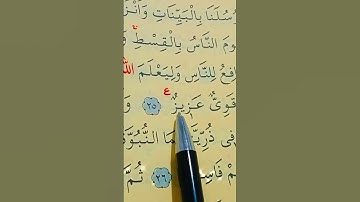 رُسُلَنَا بِالْبَيِّنَاتِ وَاَنْزَ
ومَ النَّاسُ بِالْقِسْطِ
افِعُ لِلنَّاسِ وَلِيَعْلَمَ اللّٰهُ
ع
قَوِىٌّ عَزِيزٌ ﴿٢٥﴾ وَ
فِى ذُرِّيَّ مَا النُّبُوَّ
مْ فَاسِ ﴿٢٦﴾ ثُمَّ